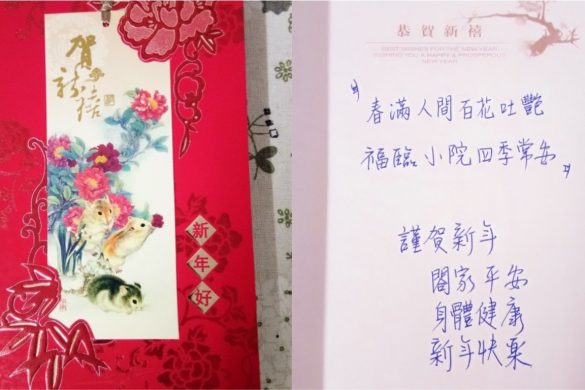 賀新禧
新年好
恭賀新禧
BEST WISHES FOR THE NEW YEAR
WISHING YOU A HAPPY & PROSPEROUS
NEW YEAR
春滿人間百花吐艷
福臨小院四季常安
謹賀新年
閤家平安
身體健康
新年快樂